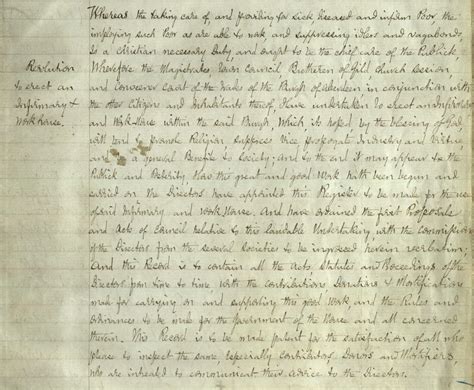 Whereas the taking care of and providing for sick diseased and infirm Poor the
imploying such Poor as are able to work and suppressing idlers and vagabonds,
is a Christian necessary Duty, and ought to be the chief care of the Publick,
Wherefore the Magistrates Town Council Brethren of Gild Church Session
and Convener Court of the Trades of the Burgh of Aberdeen in conjunction with
the other Citizens and Inhabitants thereof Have undertaken to erect an Infirmary
and Work House within the said Burgh, Which, its hoped by the blessing of God
will tend to promote Religion suppress Vice propogate Industry and Virtue
and a general Benefite to Society; and to the end it may appear to the
Publick and Posterity How this great and good Work hath been begun and
carried on the Directors have appointed this Register to be made for the use
of said Infirmary and Work House, And have ordained the first Proposals
and Acts of Council relative to this laudable Undertaking with the commissions
of the Directors from the several Societies to be ingrossed herein verbatim;
And this Record is to contain all the Acts, Statutes and Proceedings of the
Directors from time to time with the contributions, Donations & Mortifications
made for carrying on and supporting this good Work and the Rules and
ordinances to be made for the Government of the House and all concerned
therein. This Record is to be made patent for the satisfaction of all who
please to inspect the same, especially contributors, Donors and Mortifiers,
who are intreated to communicate their advice to the Directors.
Resolution
to erect an
Infirmary &
Workhouse.